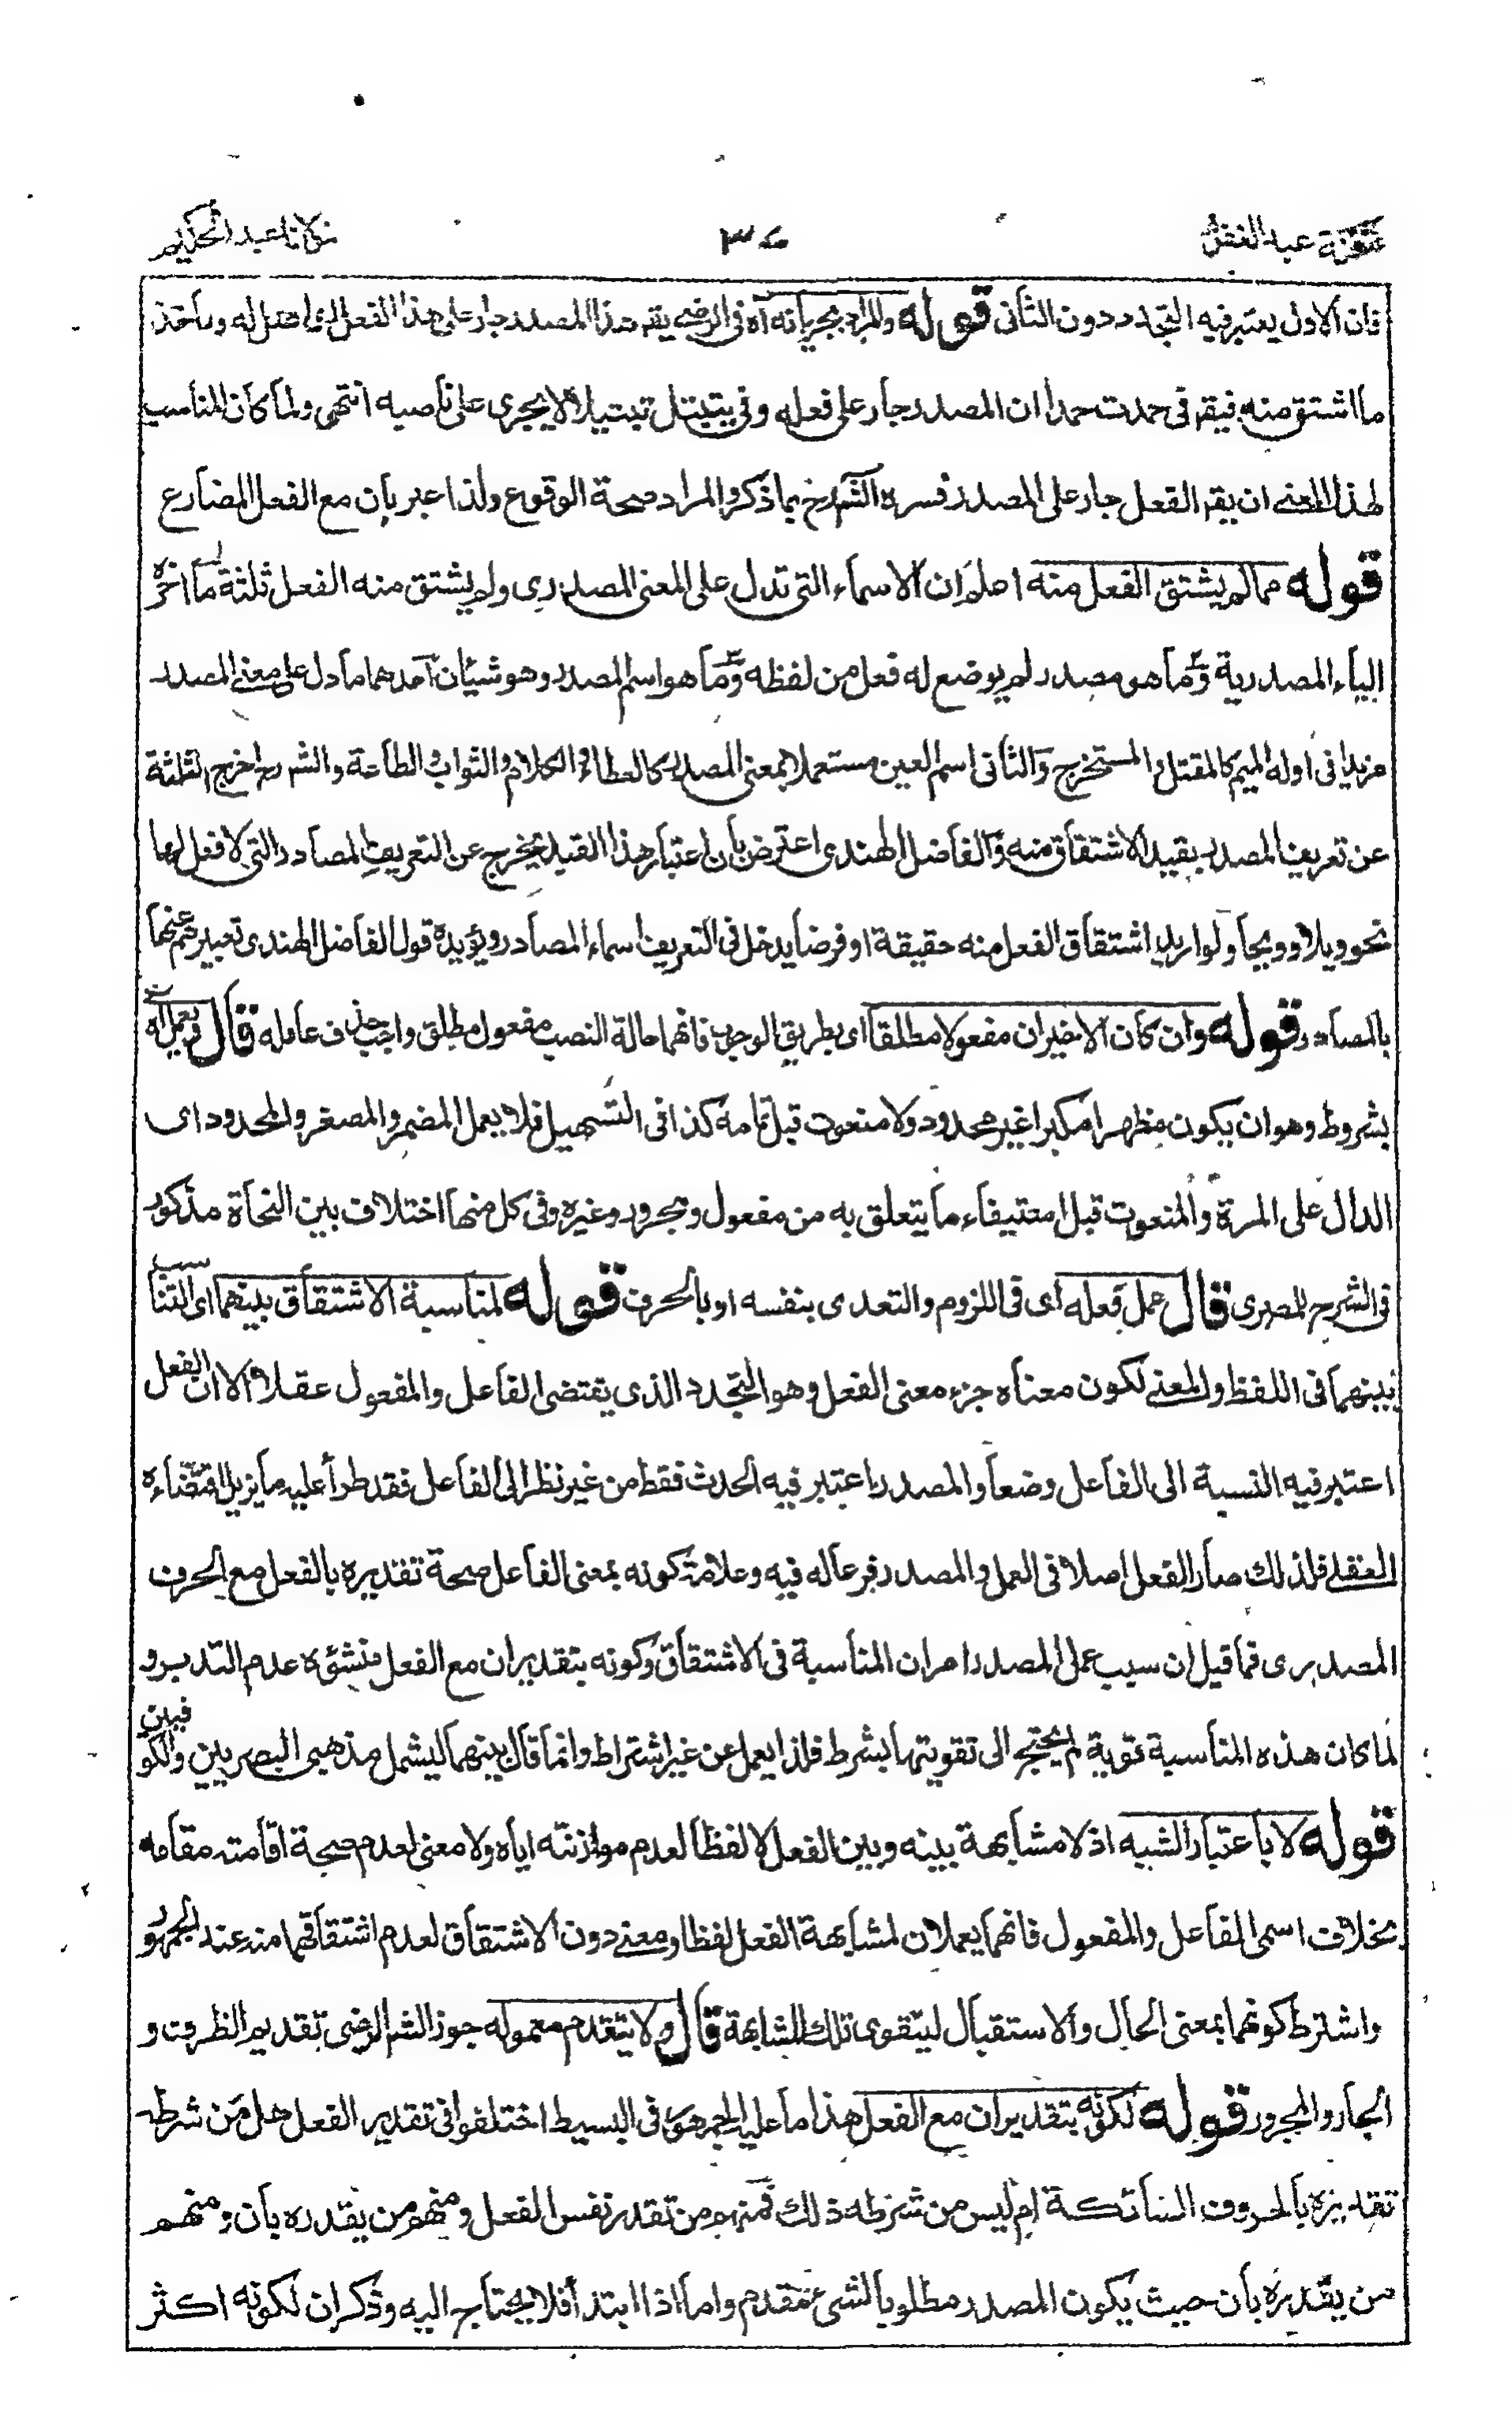 عبد الغفور ٣٠ مولانا عبد الحكيم
فان الاول يعتبر فيه التجدد دون الثانى قوله والمراد بجريانه آه فى الرضى يقم هذا المصدر جار على هذا الفعل اى اصل له وماخذ
ما اشتق منه فيقم فى حمدت حمدا ان المصدر جار على فعله وفى تبتل تبتيلا لا يجرى على ناصبه انتهى ولما كان المناسب
لهذا المعنى ان يقم الفعل جار على المصدر فسره الشارح بما ذكر والمراد صحة الوقوع ولذا عبر بان مع الفعل المضارع
قوله مما لم يشتق الفعل منه اعلم ان الاسماء التى تدل على المعنى المصدرى ولم يشتق منه الفعل ثلثة ما آخره
الياء المصدرية وما هو مصدر لم يوضع له فعل من لفظه وما هو اسم المصدر وهو شيئان احدهما ما دل على معنى المصدر
مزيدا فى اوله الميم كالمقتل والمستخرج والثانى اسم العين مستعملا بمعنى المصدر كالعطاء والكلام والثواب والطاعة والشرح اخرج الثلثة
عن تعريف المصدر بقيد الاشتقاق منه والفاضل الهندى اعترض بان اعتبار هذا القيد يخرج عن التعريف المصادر التى لا فعل لها
نحو ويلا وويحا ولو اريد اشتقاق الفعل منه حقيقة او فرضا يدخل فى التعريف اسماء المصادر ويؤيده قول الفاضل الهندى تعبيرهم عنها
بالمصادر قوله وان كان الاخيران مفعولا مطلقا اى بطريق الوجوب فانهما حالة النصب مفعول مطلق واجب حذف عامله قال ويعمل آه
بشروط وهو ان يكون مظهرا مكبرا غير محدود ولا منعوت قبل تمامه كذا فى التسهيل فلا يعمل المضمر والمصغر والمحدود اى
الدال على المرة والمنعوت قبل استيفاء ما يتعلق به من مفعول ومجرور وغيره وفى كل منها اختلاف بين النحاة مذكور
فى الشرح للمصرى قال عمل فعله اى فى اللزوم والتعدى بنفسه او بالحرف قوله لمناسبة الاشتقاق بينهما اى التناسب
بينهما فى اللفظ والمعنى لكون معناه جزء معنى الفعل وهو التجدد الذى يقتضى الفاعل والمفعول عقلا الا ان الفعل
اعتبر فيه النسبة الى الفاعل وضعا والمصدر اعتبر فيه الحدث فقط من غير نظر الى الفاعل فقد طرأ عليه ما يزيل اقتضاءه
العقلى فلذلك صار الفعل اصلا فى العمل والمصدر فرعا له فيه وعلامة كونه بمعنى الفاعل صحة تقديره بالفعل مع الحرف
المصدرى فما قيل ان سبب عمل المصدر امران المناسبة فى الاشتقاق وكونه بتقدير ان مع الفعل منشؤه عدم التدبر و
لما كان هذه المناسبة قوية لم يحتج الى تقويتها بشرط فلذا يعمل من غير اشتراط وانما قال بينهما ليشمل مذهبى البصريين والكوفيين
قوله لا باعتبار الشبه اذ لا مشابهة بينه وبين الفعل لا لفظا لعدم موازنته اياه ولا معنى لعدم صحة اقامته مقامه
بخلاف اسمى الفاعل والمفعول فانهما يعملان لمشابهة الفعل لفظا ومعنى دون الاشتقاق لعدم اشتقاقهما منه عند الجمهور
واشترط كونهما بمعنى الحال والاستقبال ليتقوى تلك المشابهة قال ولا يتقدم معموله جوز الشم الرضى تقديم الظرف و
الجار والمجرور قوله لكونه بتقدير ان مع الفعل هذا ما عليه الجمهور فى البسيط اختلفوا فى تقدير الفعل هل من شرطه
تقديره بالحروف السابكة ام ليس من شرطه ذلك فمنهم من تقدر نفس الفعل ومنهم من يقدره بان ومنهم
من يقدره بان حيث يكون المصدر مطلوبا لشئ متقدم واما اذا ابتدأ فلا يحتاج اليه وذكر ان لكونه اكثر